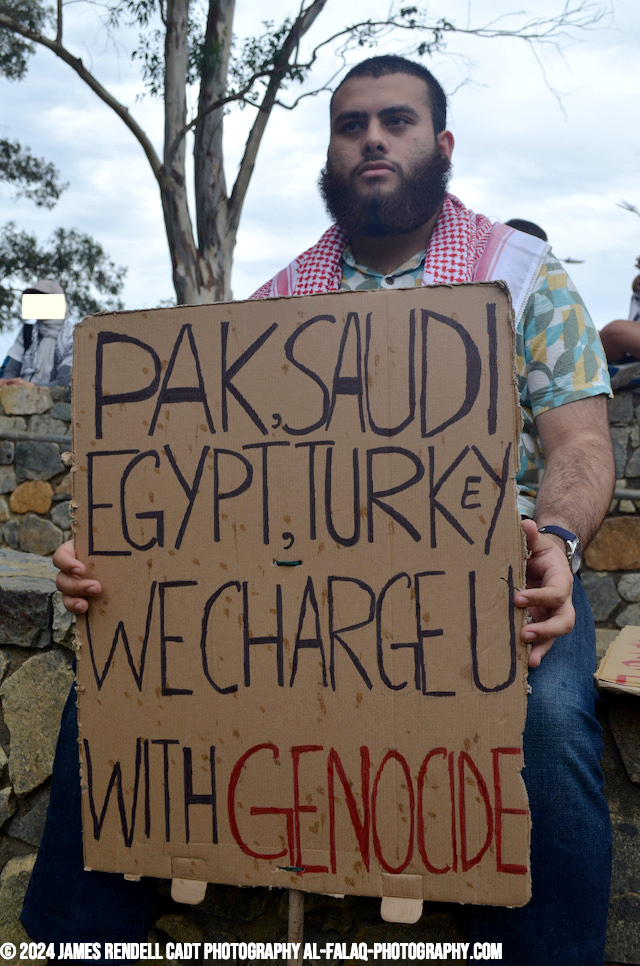 PAK, SAUDI
EGYPT, TURKEY
WE CHARGE U
WITH GENOCIDE
© 2024 JAMES RENDELL CADT PHOTOGRAPHY AL-FALAQ-PHOTOGRAPHY.COM